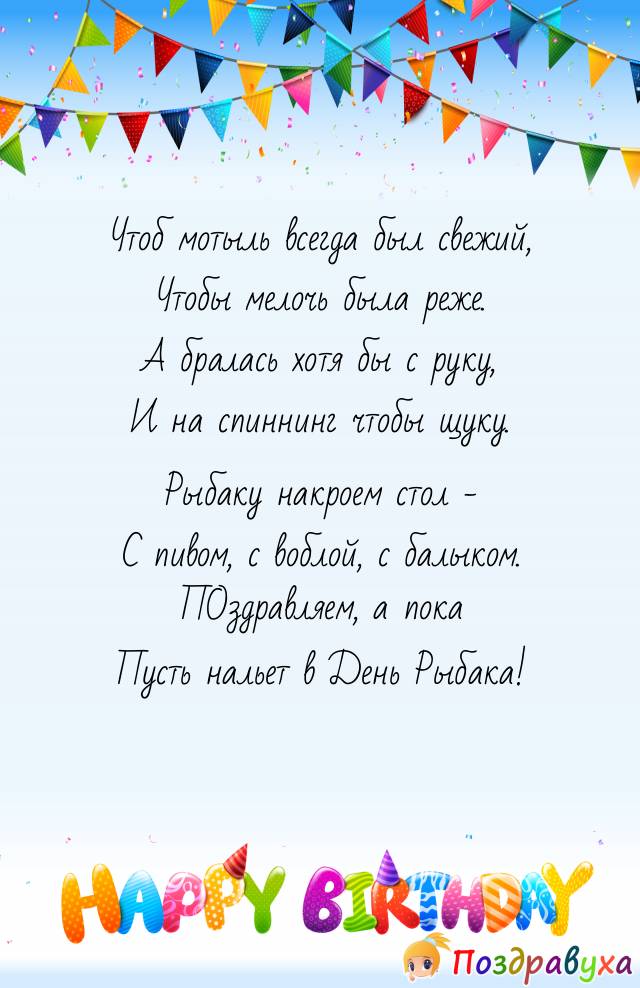 Чтоб мотыль всегда был свежий,
Чтобы мелочь была реже.
А бралась хотя бы с руку,
И на спиннинг чтобы щуку.
Рыбаку накроем стол -
С пивом, с воблой, с балыком.
ПОздравляем, а пока
Пусть нальет в День Рыбака!
HAPPY BIRTHDAY
Поздравуха